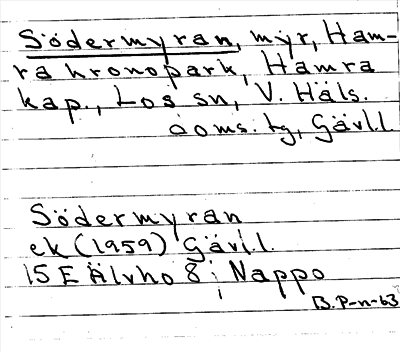 Södermyran, myr, Ham-
ra kronopark, Hamra
kap., Los sn, V. Häls.
doms. tg, Gävl.l.
Södermyran
ek (1959) Gävl.l.
15 E Älvho 8 i Nappo
B. P-n-63